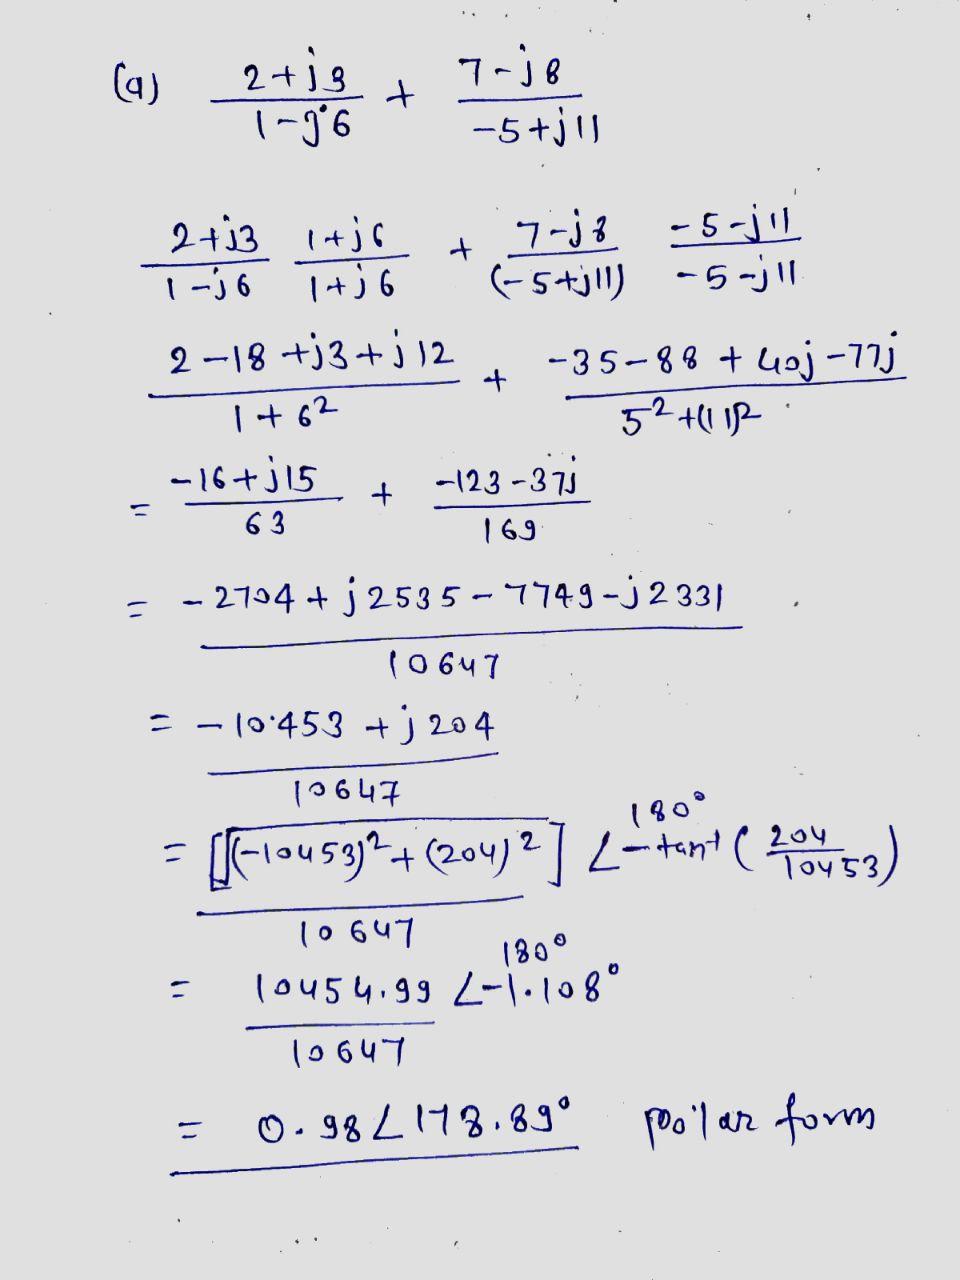 (a) (2+j3)/(1-j6) + (7-j8)/(-5+j11)
(2+j3)/(1-j6) (1+j6)/(1+j6) + (7-j8)/((-5+j11)) (-5-j11)/(-5-j11)
(2-18+j3+j12)/(1+6²) + (-35-88+40j-77j)/(5²+(11)²)
= (-16+j15)/63 + (-123-37j)/169
= (-2704+j2535-7749-j2331)/10647
= (-10.453+j204)/10647
= [√((-10453)²+(204)²)]/10647 ∠ 180° - tan⁻¹(204/10453)
= 10454.99/10647 ∠ 180° -1.108°
= 0.98∠178.89° polar form